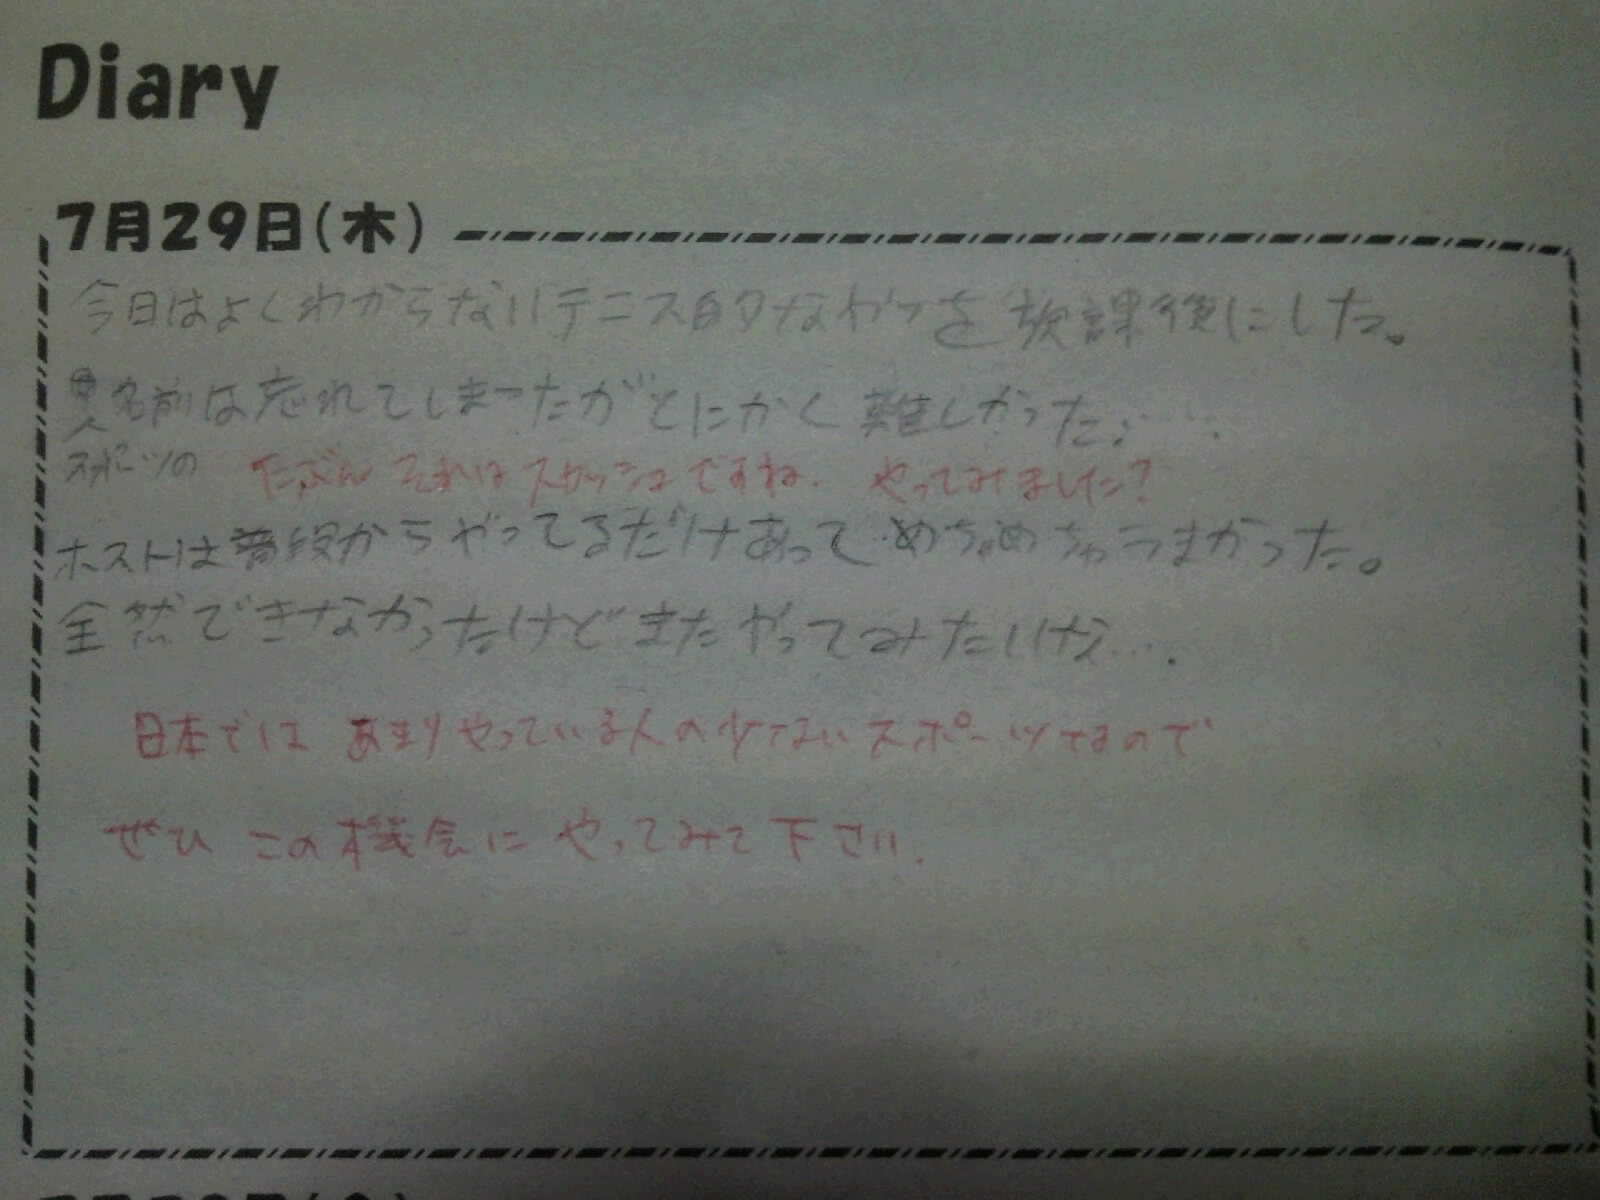 Diary
7月29日(木)
今日はよくわからないテニス的なやつを放課後にした。
名前は忘れてしまったがとにかく難しかった……
スポーツの
たぶん それは スカッシュですね. やってみました?
ホストは普段からやってるだけあってめちゃめちゃうまかった。
全然できなかったけどまたやってみたいけど….
日本では あまりやっている人の少ないスポーツなので
ぜひ この機会に やってみて下さい.